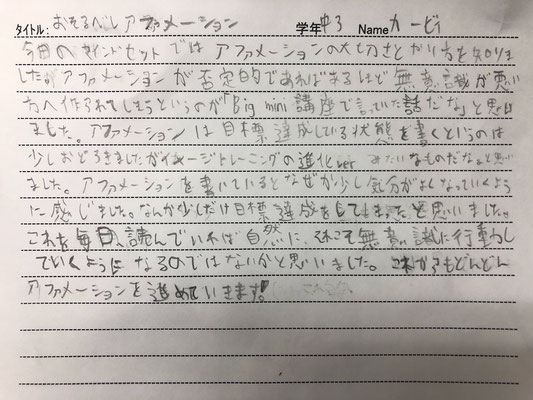 タイトル: おそるべし アファメーション 学年 中3 Name カービィ
今日のマインドセットではアファメーションの大切さとやり方を知りま
した。アファメーションが否定的であればあるほど無意識が悪い
方へ作られてしまうというのが「Big mini講座で言っていた話だな」と思い
ました。アファメーションは目標達成している状態を書くというのは
少しおどろきましたがイメージトレーニングの進化ver みたいなものだなぁと思い
ました。アファメーションを書いているとなぜか少し気分がよくなっていくよう
に感じました。なんか少しだけ目標達成をしてしまったと思いました。
これを毎日、読んでいれば自然に、それこそ無意識に行動し
ていくようになるのではないかと思いました。これからもどんどん
アファメーションを進めていきます!